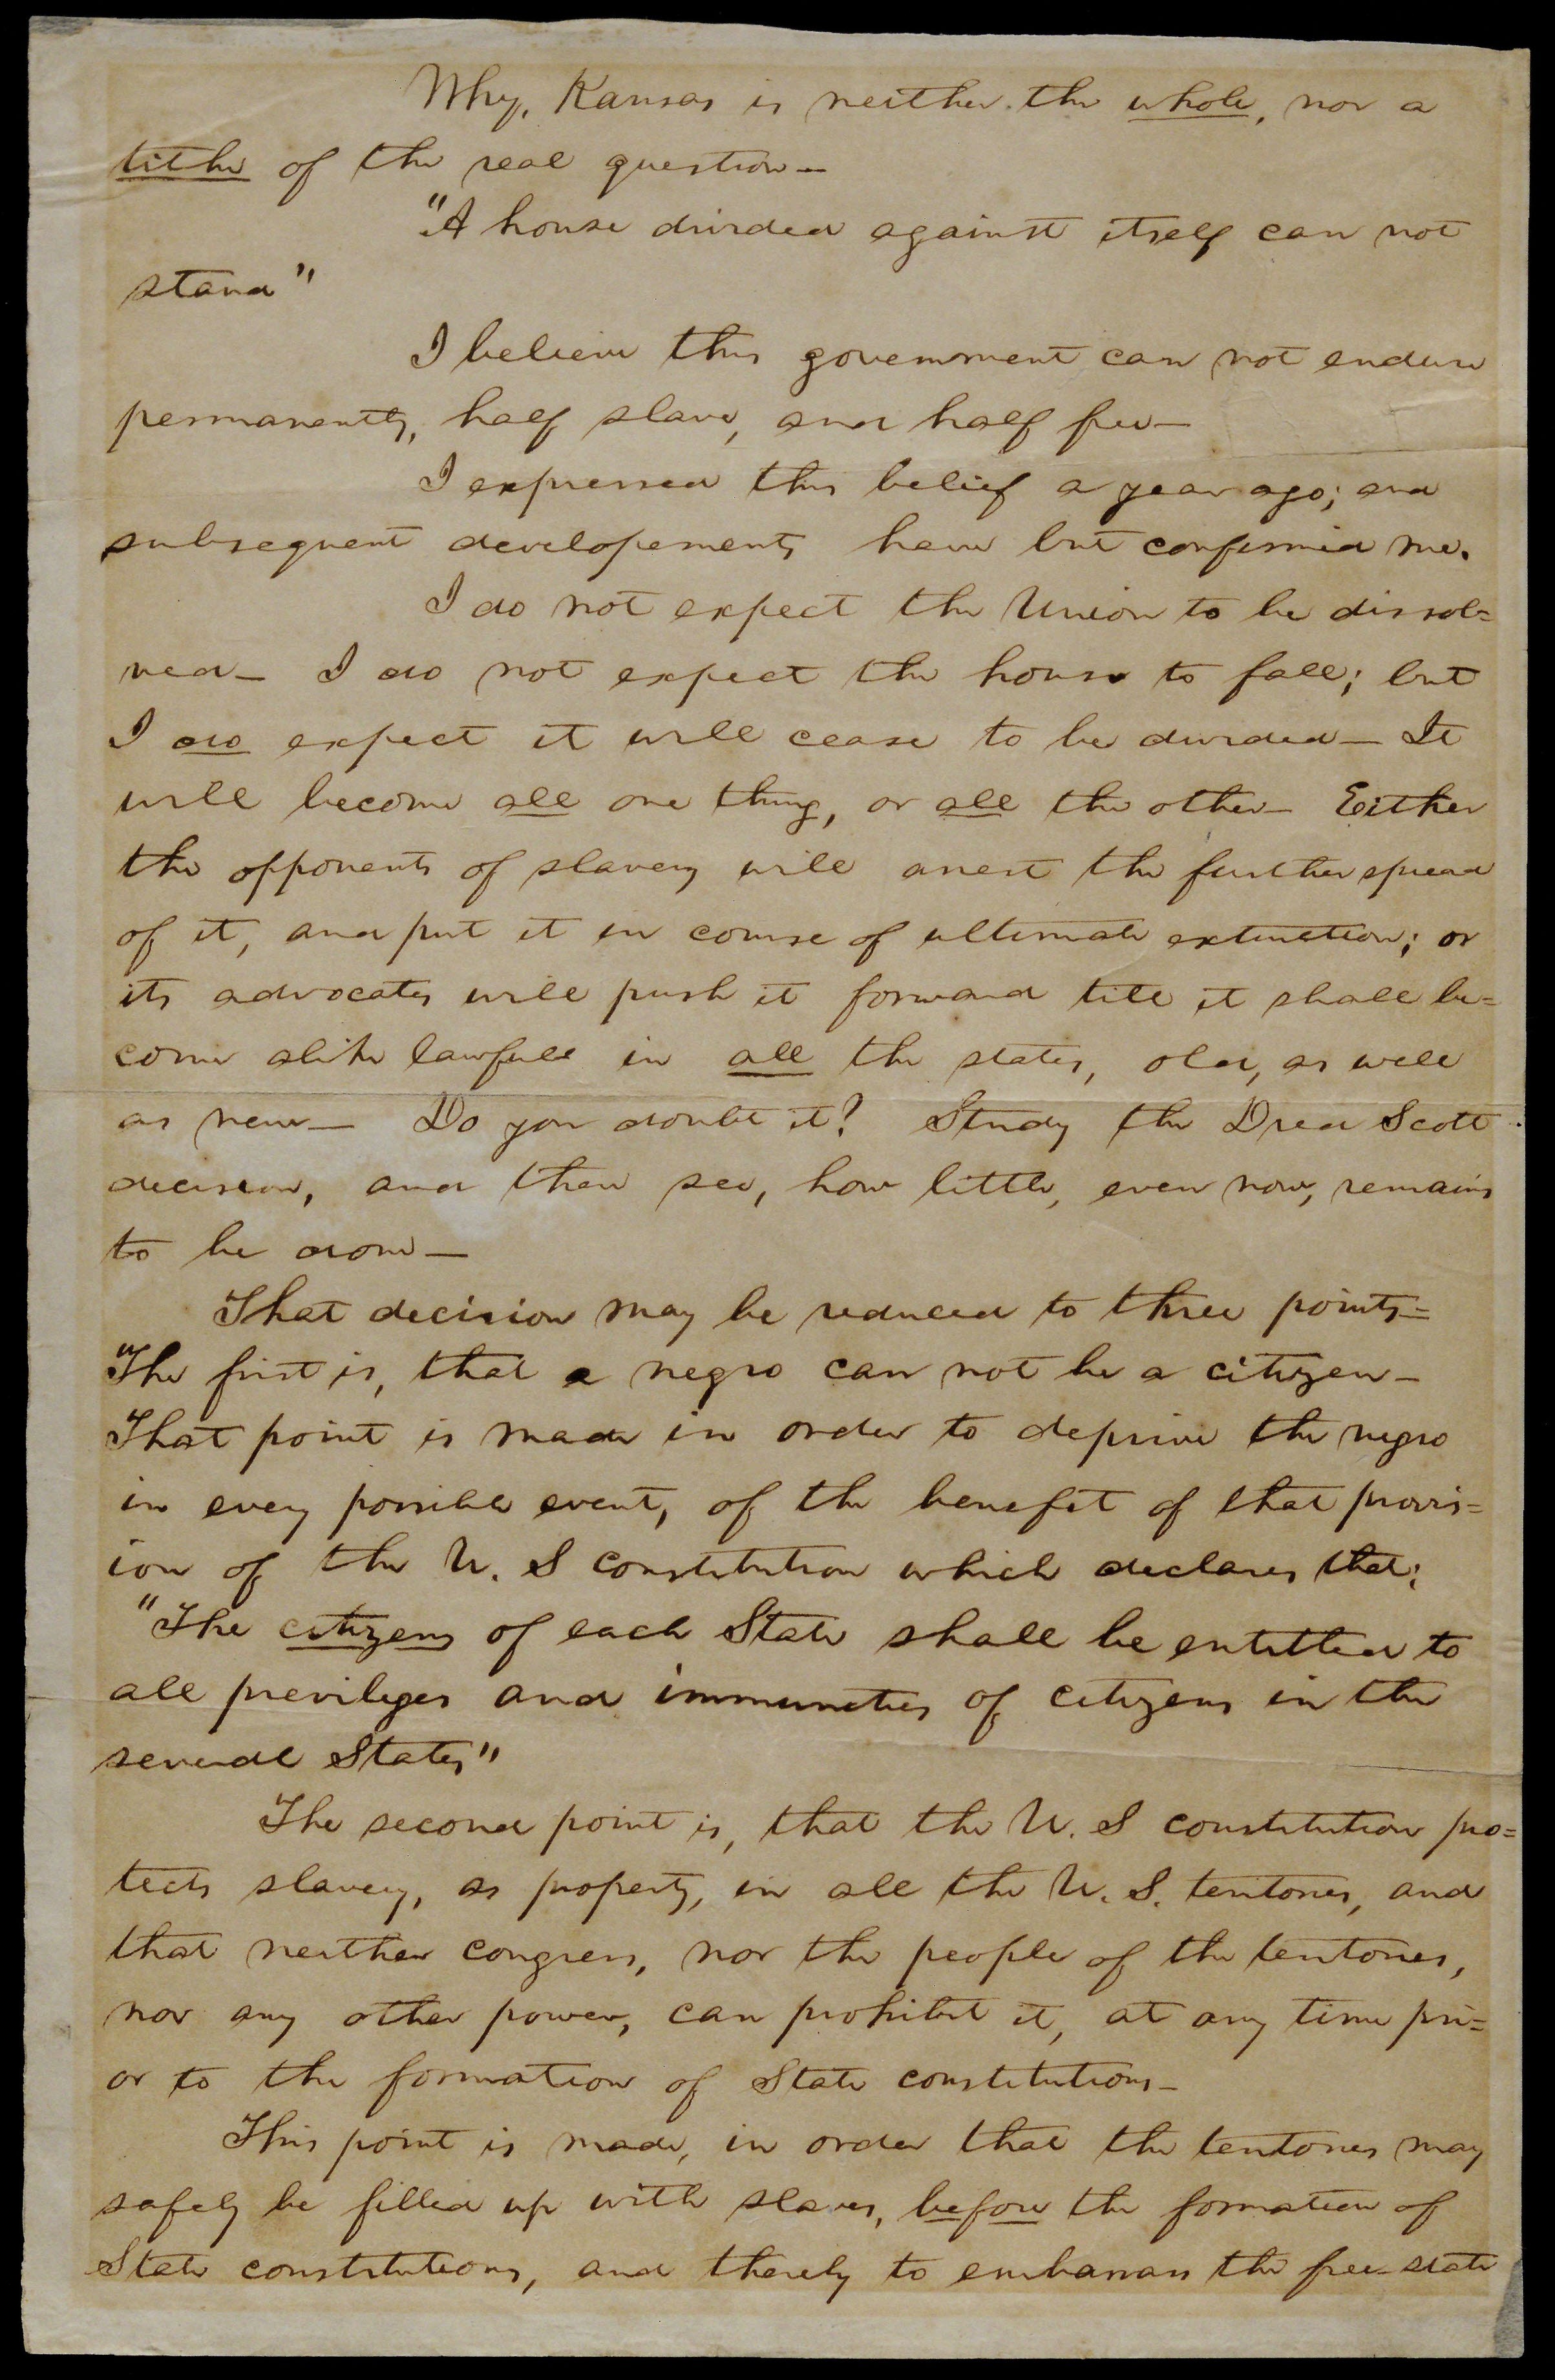 Why, Kansas is neither the whole, nor a
tithe of the real question—
"A house divided against itself can not
stand"
I believe this government can not endure
permanently, half slave, and half free—
I expressed this belief a year ago; and
subsequent developements have but confirmed me.
I do not expect the Union to be dissol=
ved— I do not expect the house to fall; but
I do expect it will cease to be divided— It
will become all one thing, or all the other— Either
the opponents of slavery will arrest the further spread
of it, and put it in course of ultimate extinction; or
its advocates will push it forward till it shall be=
come alike lawfull in all the states, old, as well
as new— Do you doubt it? Study the Dred Scott
decision, and then see, how little, even now, remains
to be done—
That decision may be reduced to three points=
"The first is, that a negro can not be a citizen—
That point is made in order to deprive the negro
in every possible event, of the benefit of that provis=
ion of the U. S constitution which declares that:
"The citizens of each State shall be entitled to
all previleges and immunities of citizens in the
several States"
The second point is, that the U. S constitution pro=
tects slavery, as property, in all the U. S. territories, and
that neither congress, nor the people of the territories,
nor any other power, can prohibit it, at any time pri=
or to the formation of State constitutions—
This point is made, in order that the territories may
safely be filled up with slaves, before the formation of
State constitutions, and thereby to embarrass the free-state